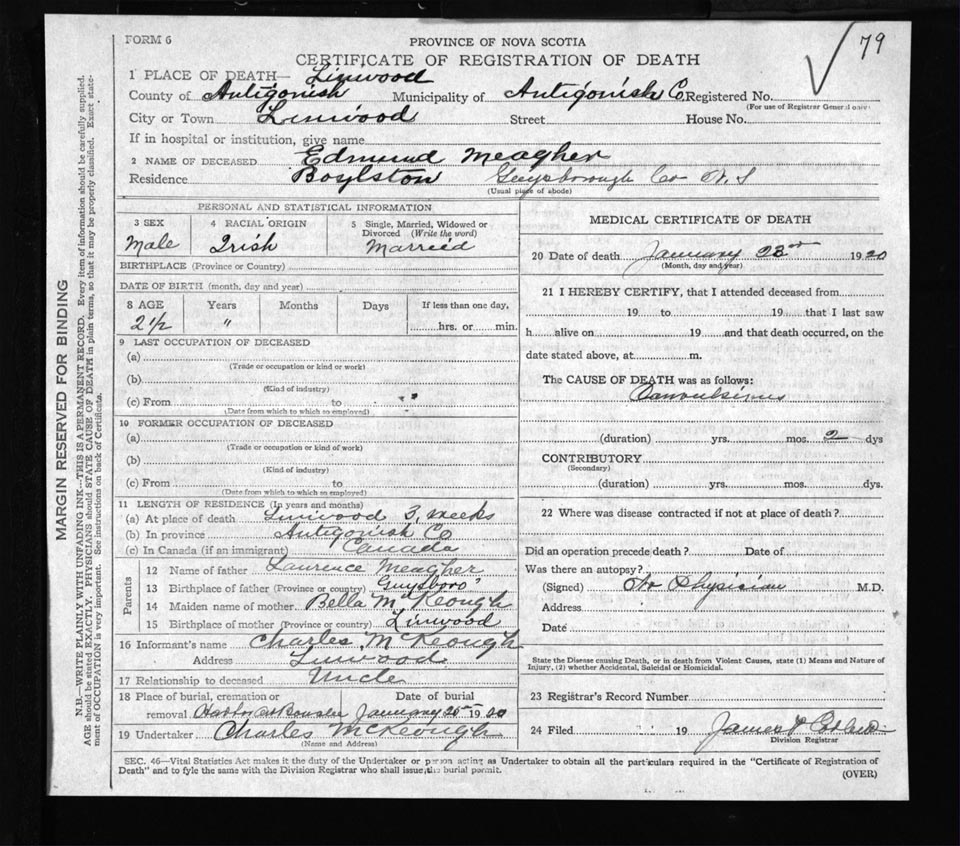 FORM 6
79
PROVINCE OF NOVA SCOTIA
CERTIFICATE OF REGISTRATION OF DEATH
1 PLACE OF DEATH— Linwood
County of Antigonish Municipality of Antigonish Co. Registered No.
(For use of Registrar General only)
City or Town Linwood Street House No.
If in hospital or institution, give name
2 NAME OF DECEASED Edmund Meagher
Residence Boylston Guysborough Co N.S
(Usual place of abode)
PERSONAL AND STATISTICAL INFORMATION
3 SEX Male
4 RACIAL ORIGIN Irish
5 Single, Married, Widowed or Divorced (Write the word) Married
BIRTHPLACE (Province or Country)
DATE OF BIRTH (month, day and year)
8 AGE Years Months Days If less than one day,
2 1/2 " hrs. or min.
9 LAST OCCUPATION OF DECEASED
(a)
(Trade or occupation or kind or work)
(b)
(Kind of industry)
(c) From to
(Date from which to which so employed)
10 FORMER OCCUPATION OF DECEASED
(a)
(Trade or occupation or kind of work)
(b)
(Kind of industry)
(c) From to
(Date from which to which so employed)
11 LENGTH OF RESIDENCE (In years and months)
(a) At place of death Linwood 3 weeks
(b) In province Antigonish Co
(c) In Canada (if an immigrant) Canada
Parents
12 Name of father Laurence Meagher
13 Birthplace of father (Province or country) Guysboro'
14 Maiden name of mother Bella McKeough
15 Birthplace of mother (Province or country) Linwood
16 Informant's name Charles McKeough
Address Linwood
17 Relationship to deceased Uncle
18 Place of burial, cremation or removal Date of burial
January 25th 1930
19 Undertaker Charles McKeough
(Name and Address)
MEDICAL CERTIFICATE OF DEATH
20 Date of death January 23rd 1930
(Month, day and year)
21 I HEREBY CERTIFY, that I attended deceased from
19 to 19 that I last saw
h alive on 19 and that death occurred, on the
date stated above, at m.
The CAUSE OF DEATH was as follows:
(duration) yrs. mos. 2 dys
CONTRIBUTORY
(Secondary)
(duration) yrs. mos. dys.
22 Where was disease contracted if not at place of death?
Did an operation precede death? Date of
Was there an autopsy?
(Signed) No Physician M.D.
Address
Date
State the Disease causing Death, or in death from Violent Causes, state (1) Means and Nature of
Injury, (2) whether Accidental, Suicidal or Homicidal.
23 Registrar's Record Number
24 Filed 19 James
Division Registrar
SEC. 46—Vital Statistics Act makes it the duty of the Undertaker or person acting as Undertaker to obtain all the particulars required in the "Certificate of Registration of
Death" and to fyle the same with the Division Registrar who shall issue the burial permit.
(OVER)
MARGIN RESERVED FOR BINDING
N.B.—WRITE PLAINLY WITH UNFADING INK—THIS IS A PERMANENT RECORD. Every item of information should be carefully supplied.
AGE should be stated EXACTLY. PHYSICIANS should STATE CAUSE OF DEATH in plain terms, so that it may be properly classified. Exact state-
ment of OCCUPATION is very important. See instructions on back of Certificate.